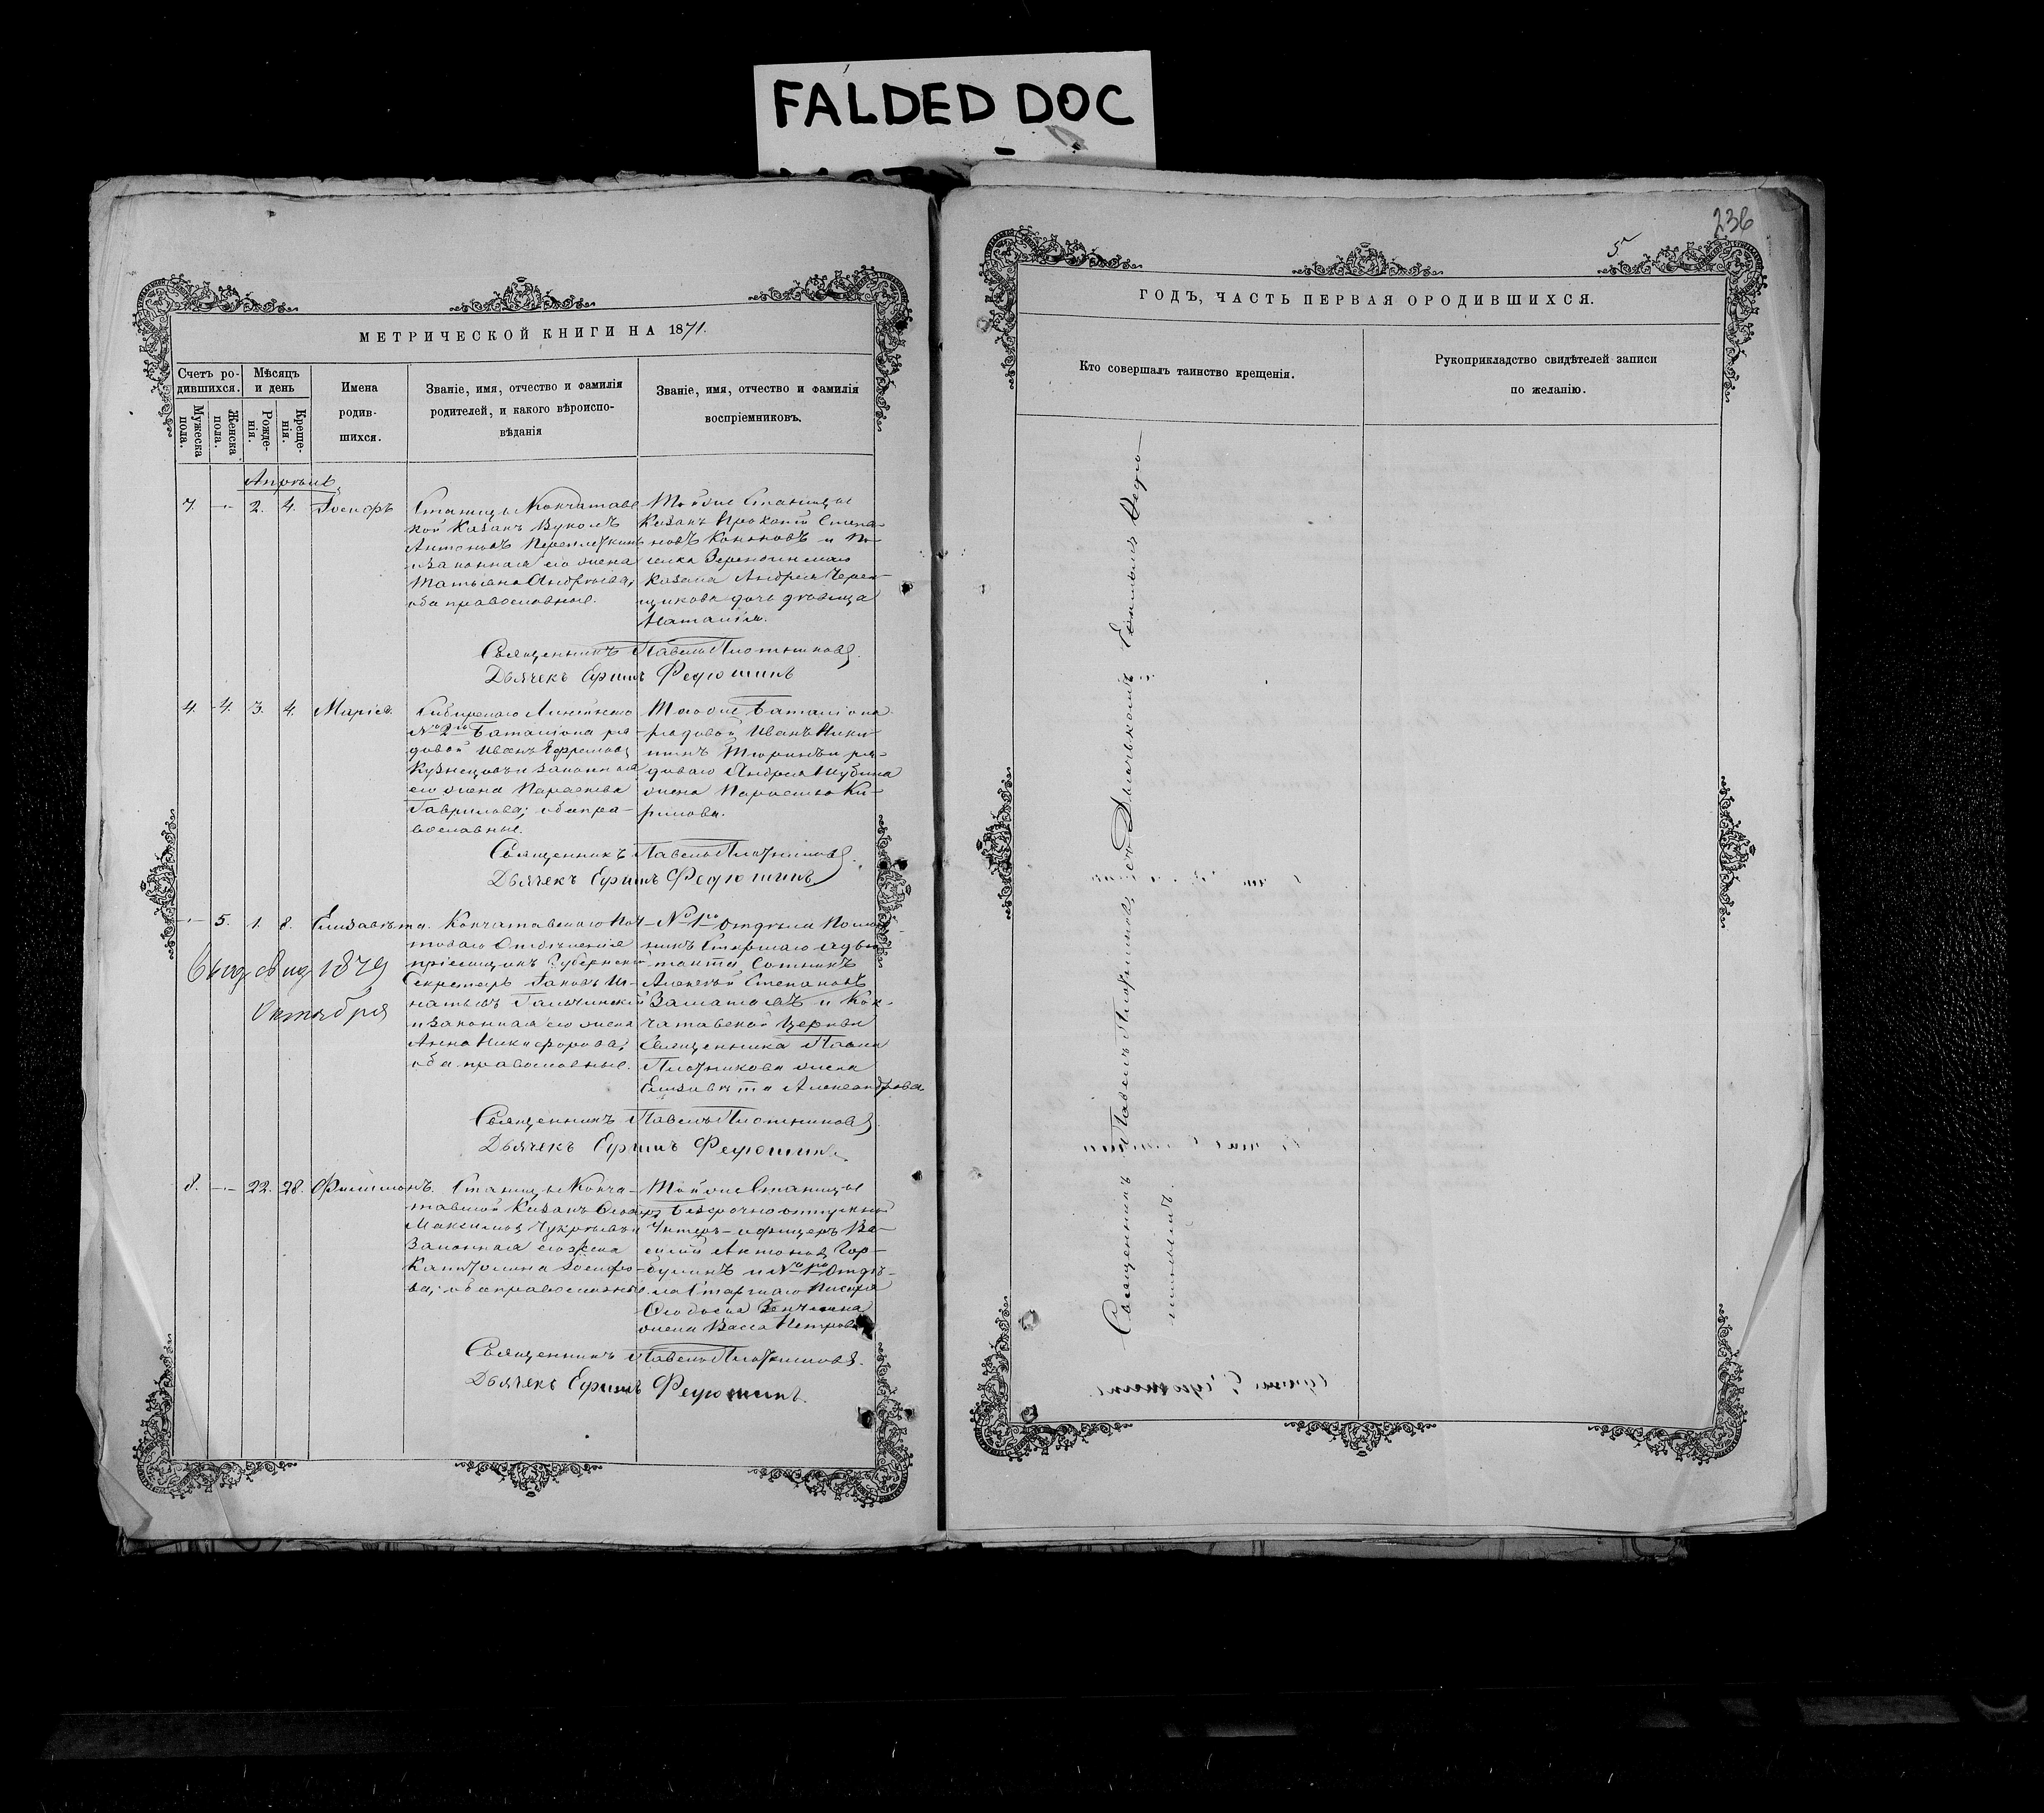 FALDED DOC
236
5
МЕТРИЧЕСКОЙ КНИГИ НА 1871.
Счетъ ро-
дившихся.
Мѣсяцъ
и день
Мужеска
пола.
Женска
пола.
Рожде-
нія.
Креще-
нія.
Имена
родив-
шихся.
Званіе, имя, отчество и фамилія
родителей, и какого вѣроиспо-
вѣданія
Званіе, имя, отчество и фамилія
воспріемниковъ.
Апрѣль
7. — 2. 4. Іосифъ
Станицы Кокчатавс
кой Казакъ Вуколъ
Антоновъ Переплеткинъ
и законная его жена
Татьяна Андреева,
оба православные.
Тойже Станицы
Казакъ Прокопій Степа-
новъ Коноковъ и По-
селка Зерендинскаго
Казака Андрея Череп-
щикова дочь дѣвица
Наталія.
Священникъ Павелъ Плотниковъ.
Дьячекъ Ефимъ Федюшинъ
4. 4. 3. 4. Марія.
Сибирскаго Линейнаго
№ 2го Баталіона ря-
довой Иванъ Ефремовъ
Кузнецовъ и законная
его жена Параскева
Гаврилова; оба пра-
вославные.
Тогоже Баталіона
рядовой Иванъ Ники-
тинъ Тюринъ и ря-
доваго Андрея Шубина
жена Параскева Ки-
рилова.
Священникъ Павелъ Плотниковъ.
Дьячекъ Ефимъ Федюшинъ
— 5. 1. 8. Елизавета.
Кокчатавскаго Поч-
товаго Отдѣленія
пріемщикъ Губернскій
Секретарь Яковъ Иг-
натьевъ
и законная его жена
Анна Никифорова;
оба православные.
№ 1го Отдѣла Помощ-
никъ Старшаго Адъю-
танта Сотникъ
Алексѣй Степановъ
и Кок-
чатавской Церкви
Священника Павла
Плотникова жена
Елизавета Александрова
1879
Октября
Священникъ Павелъ Плотниковъ.
Дьячекъ Ефимъ Федюшинъ.
8. — 22. 28. Филимонъ.
Станицы Кокча-
тавской Казакъ
Максимовъ Чукреевъ и
Законная его жена
Капитолина Іосифо-
ва; оба православные.
Тойже Станицы
Безсрочно отпускной
Унтеръ-офицеръ Ва-
силій Антоновъ Гор-
бунинъ и № 1го Отдѣ-
ла Старшаго Писаря
жена Васса Петрова
Священникъ Павелъ Плотниковъ.
Дьячекъ Ефимъ Федюшинъ.
ГОДЪ, ЧАСТЬ ПЕРВАЯ О РОДИВШИХСЯ.
Кто совершалъ таинство крещенія.
Рукоприкладство свидѣтелей записи
по желанію.
Священникъ Павелъ Плотниковъ, съ Дьячькомъ Ефимомъ Федю-
шинымъ.